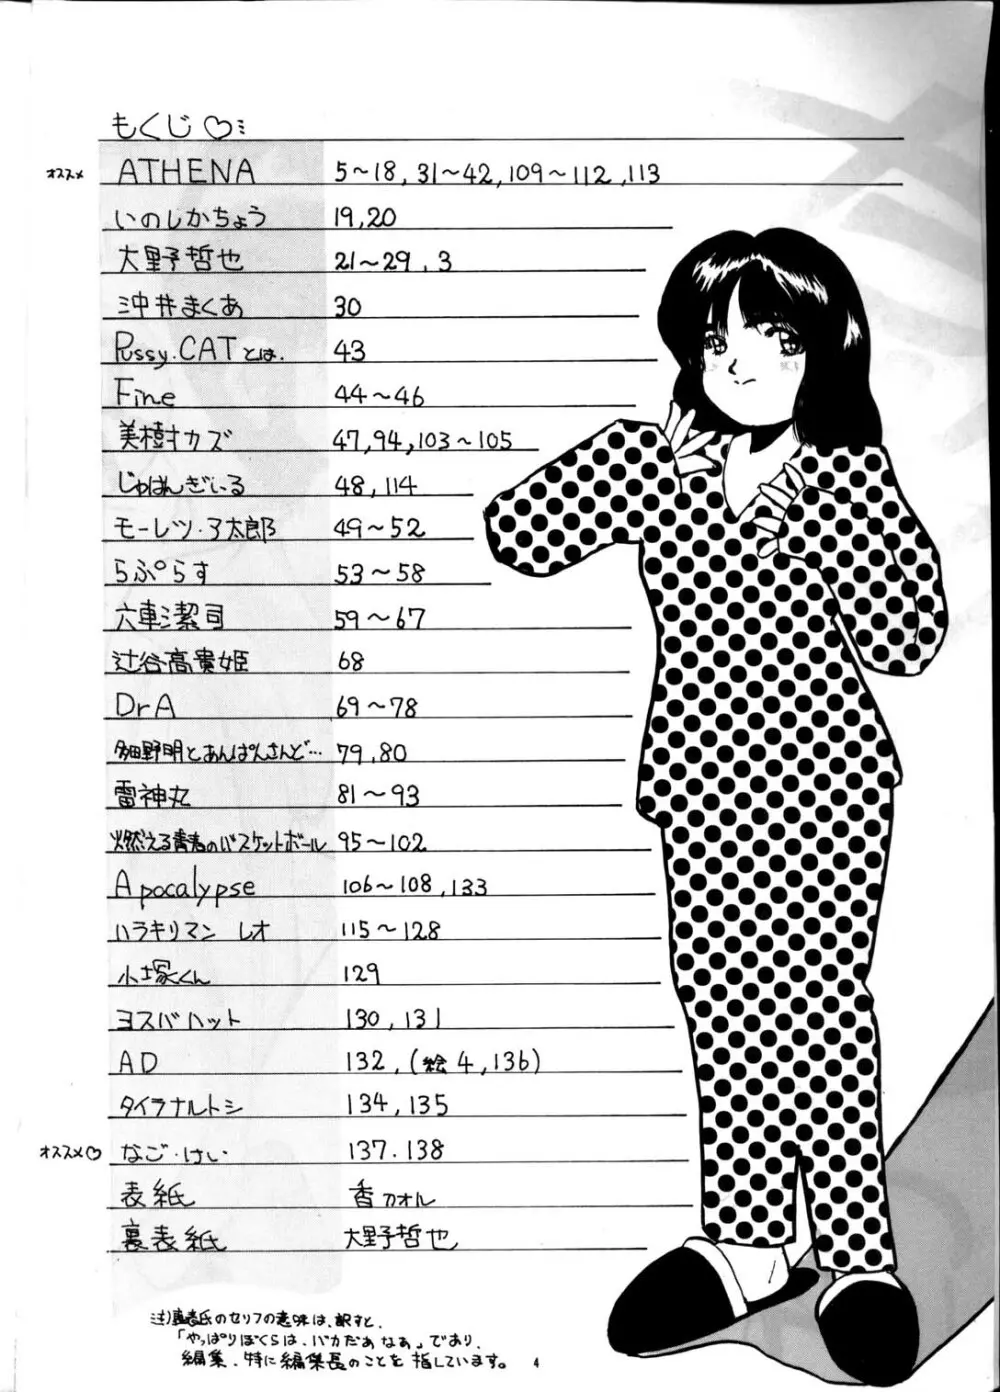 もくじ♡ミ
オススメ ATHENA 5〜18,31〜42,109〜112,113
いのしかちょう 19,20
大野哲也 21〜29,3
沖井まくあ 30
Pussy.CATとは. 43
Fine 44〜46
美樹カズ 47,94,103〜105
じゅはんぎぃる 48,114
モーレツ・ア太郎 49〜52
らぷらす 53〜58
六車潔司 59〜67
辻谷高貴姫 68
DrA 69〜78
多細野明とあんぱんさんど… 79,80
雷神丸 81〜93
燃える青春のバスケットボール 95〜102
Apocalypse 106〜108,133
ハラキリマン レオ 115〜128
小塚くん 129
ヨスバハット 130,131
AD 132,(絵4,136)
タイラナルトシ 134,135
オススメ♡ なご・けい 137.138
表紙 香カオル
裏表紙 大野哲也
注)裏表氏のセリフの意味は、訳すと、
「やっぱりぼくらは、バカだぁなぁ」であり、
編集、特に編集長のことを指しています。 4